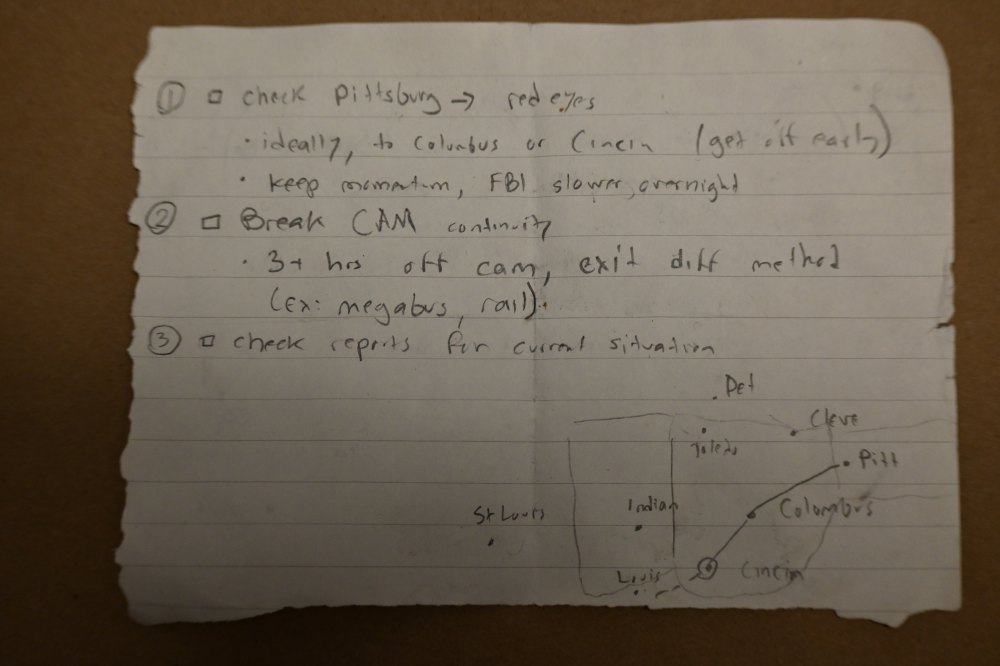 ① □ check Pittsburg → red eyes
• ideally, to Columbus or Cincin (get off early)
• keep momentum, FBI slower, overnight
② □ Break CAM continuity
• 3+ hrs off cam, exit diff method
(Ex: megabus, rail).
③ □ check reports for current situation
Det
Cleve
Toledo
Pitt
Indian
Columbus
St Louis
Cincin
Louis